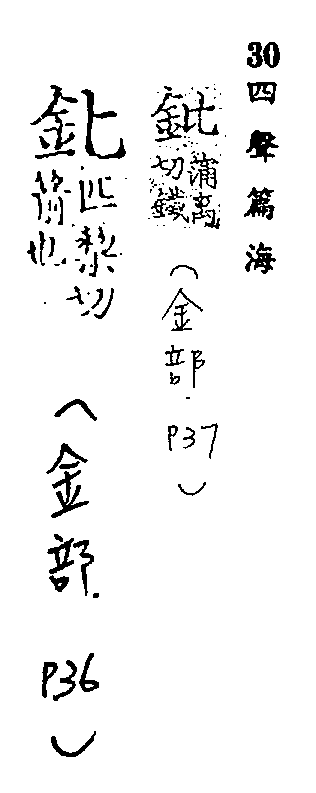 30四聲篇海
鈚蒲离切鐵（金部.P37）
釓匹黎切箭也（金部.P36）